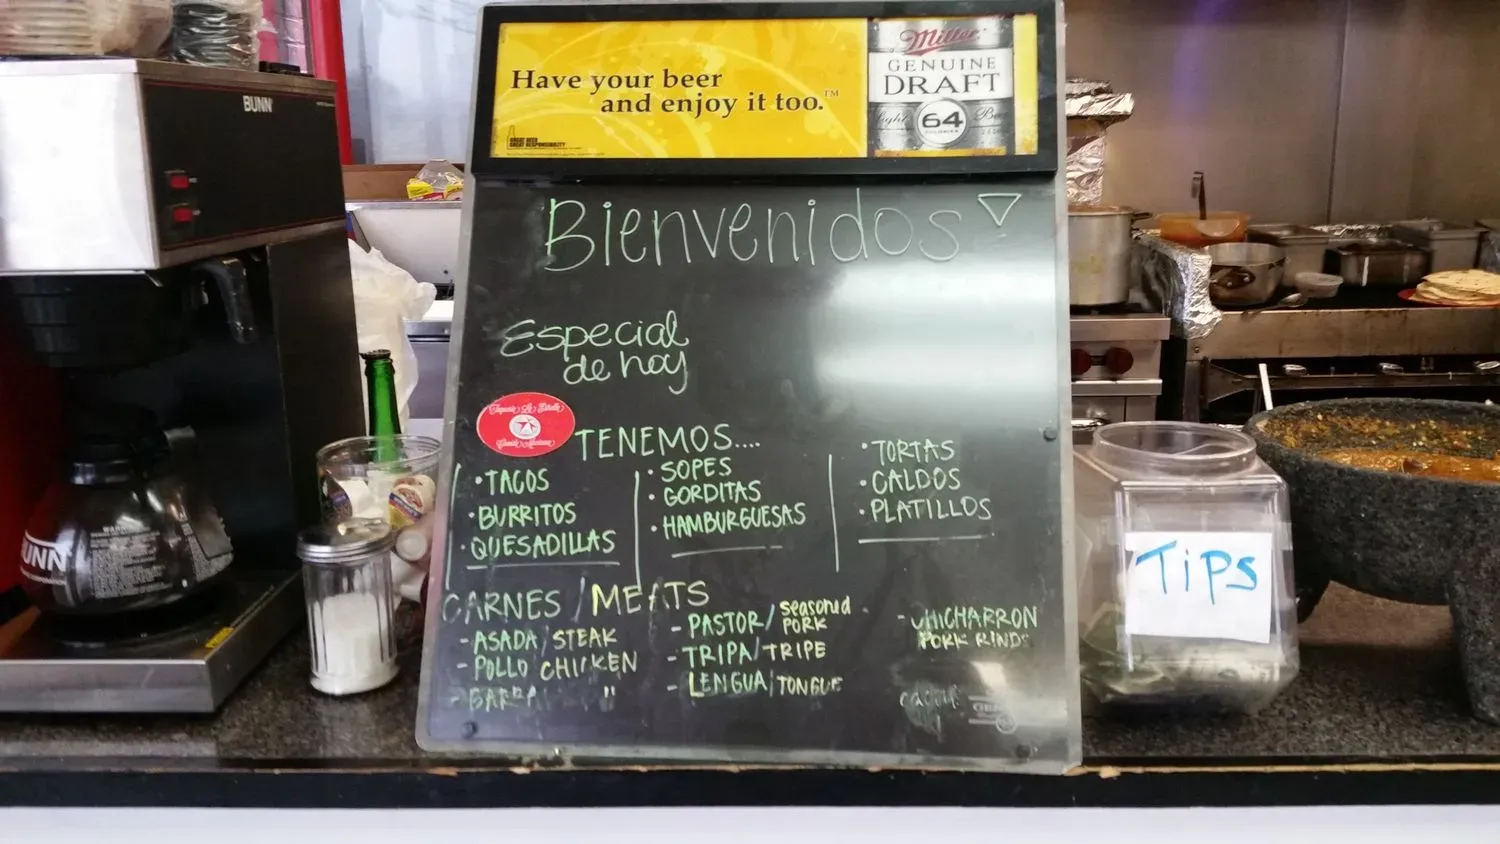 BUNN
Have your beer
and enjoy it too.™
GREAT BEER
GREAT RESPONSIBILITY
Miller
GENUINE
DRAFT
64
Bienvenidos
Especial
de hoy
TENEMOS....
• TACOS
• BURRITOS
• QUESADILLAS
• SOPES
• GORDITAS
• HAMBURGUESAS
• TORTAS
• CALDOS
• PLATILLOS
CARNES / MEATS
- ASADA / STEAK
- POLLO CHICKEN
- BARBA "
- PASTOR / seasoned
PORK
- TRIPA / TRIPE
- LENGUA / TONGUE
- CHICHARRON
PORK RINDS
Tips
UNN